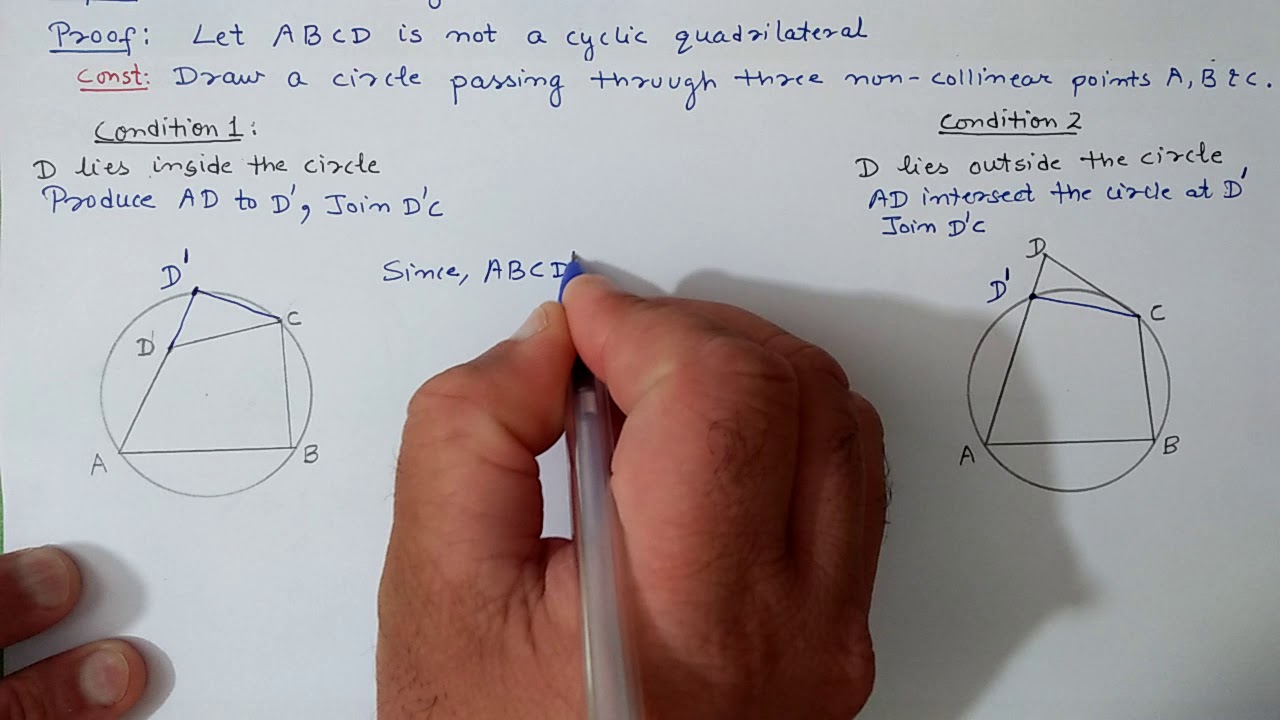 Proof: Let ABCD is not a cyclic quadrilateral
Const: Draw a circle passing through three non-collinear points A, B & C.
Condition 1:
D lies inside the circle
Produce AD to D', Join D'C
Condition 2
D lies outside the circle
AD intersect the circle at D'
Join D'C
Since, ABCD'
D'
D
C
A
B
D
D'
C
A
B